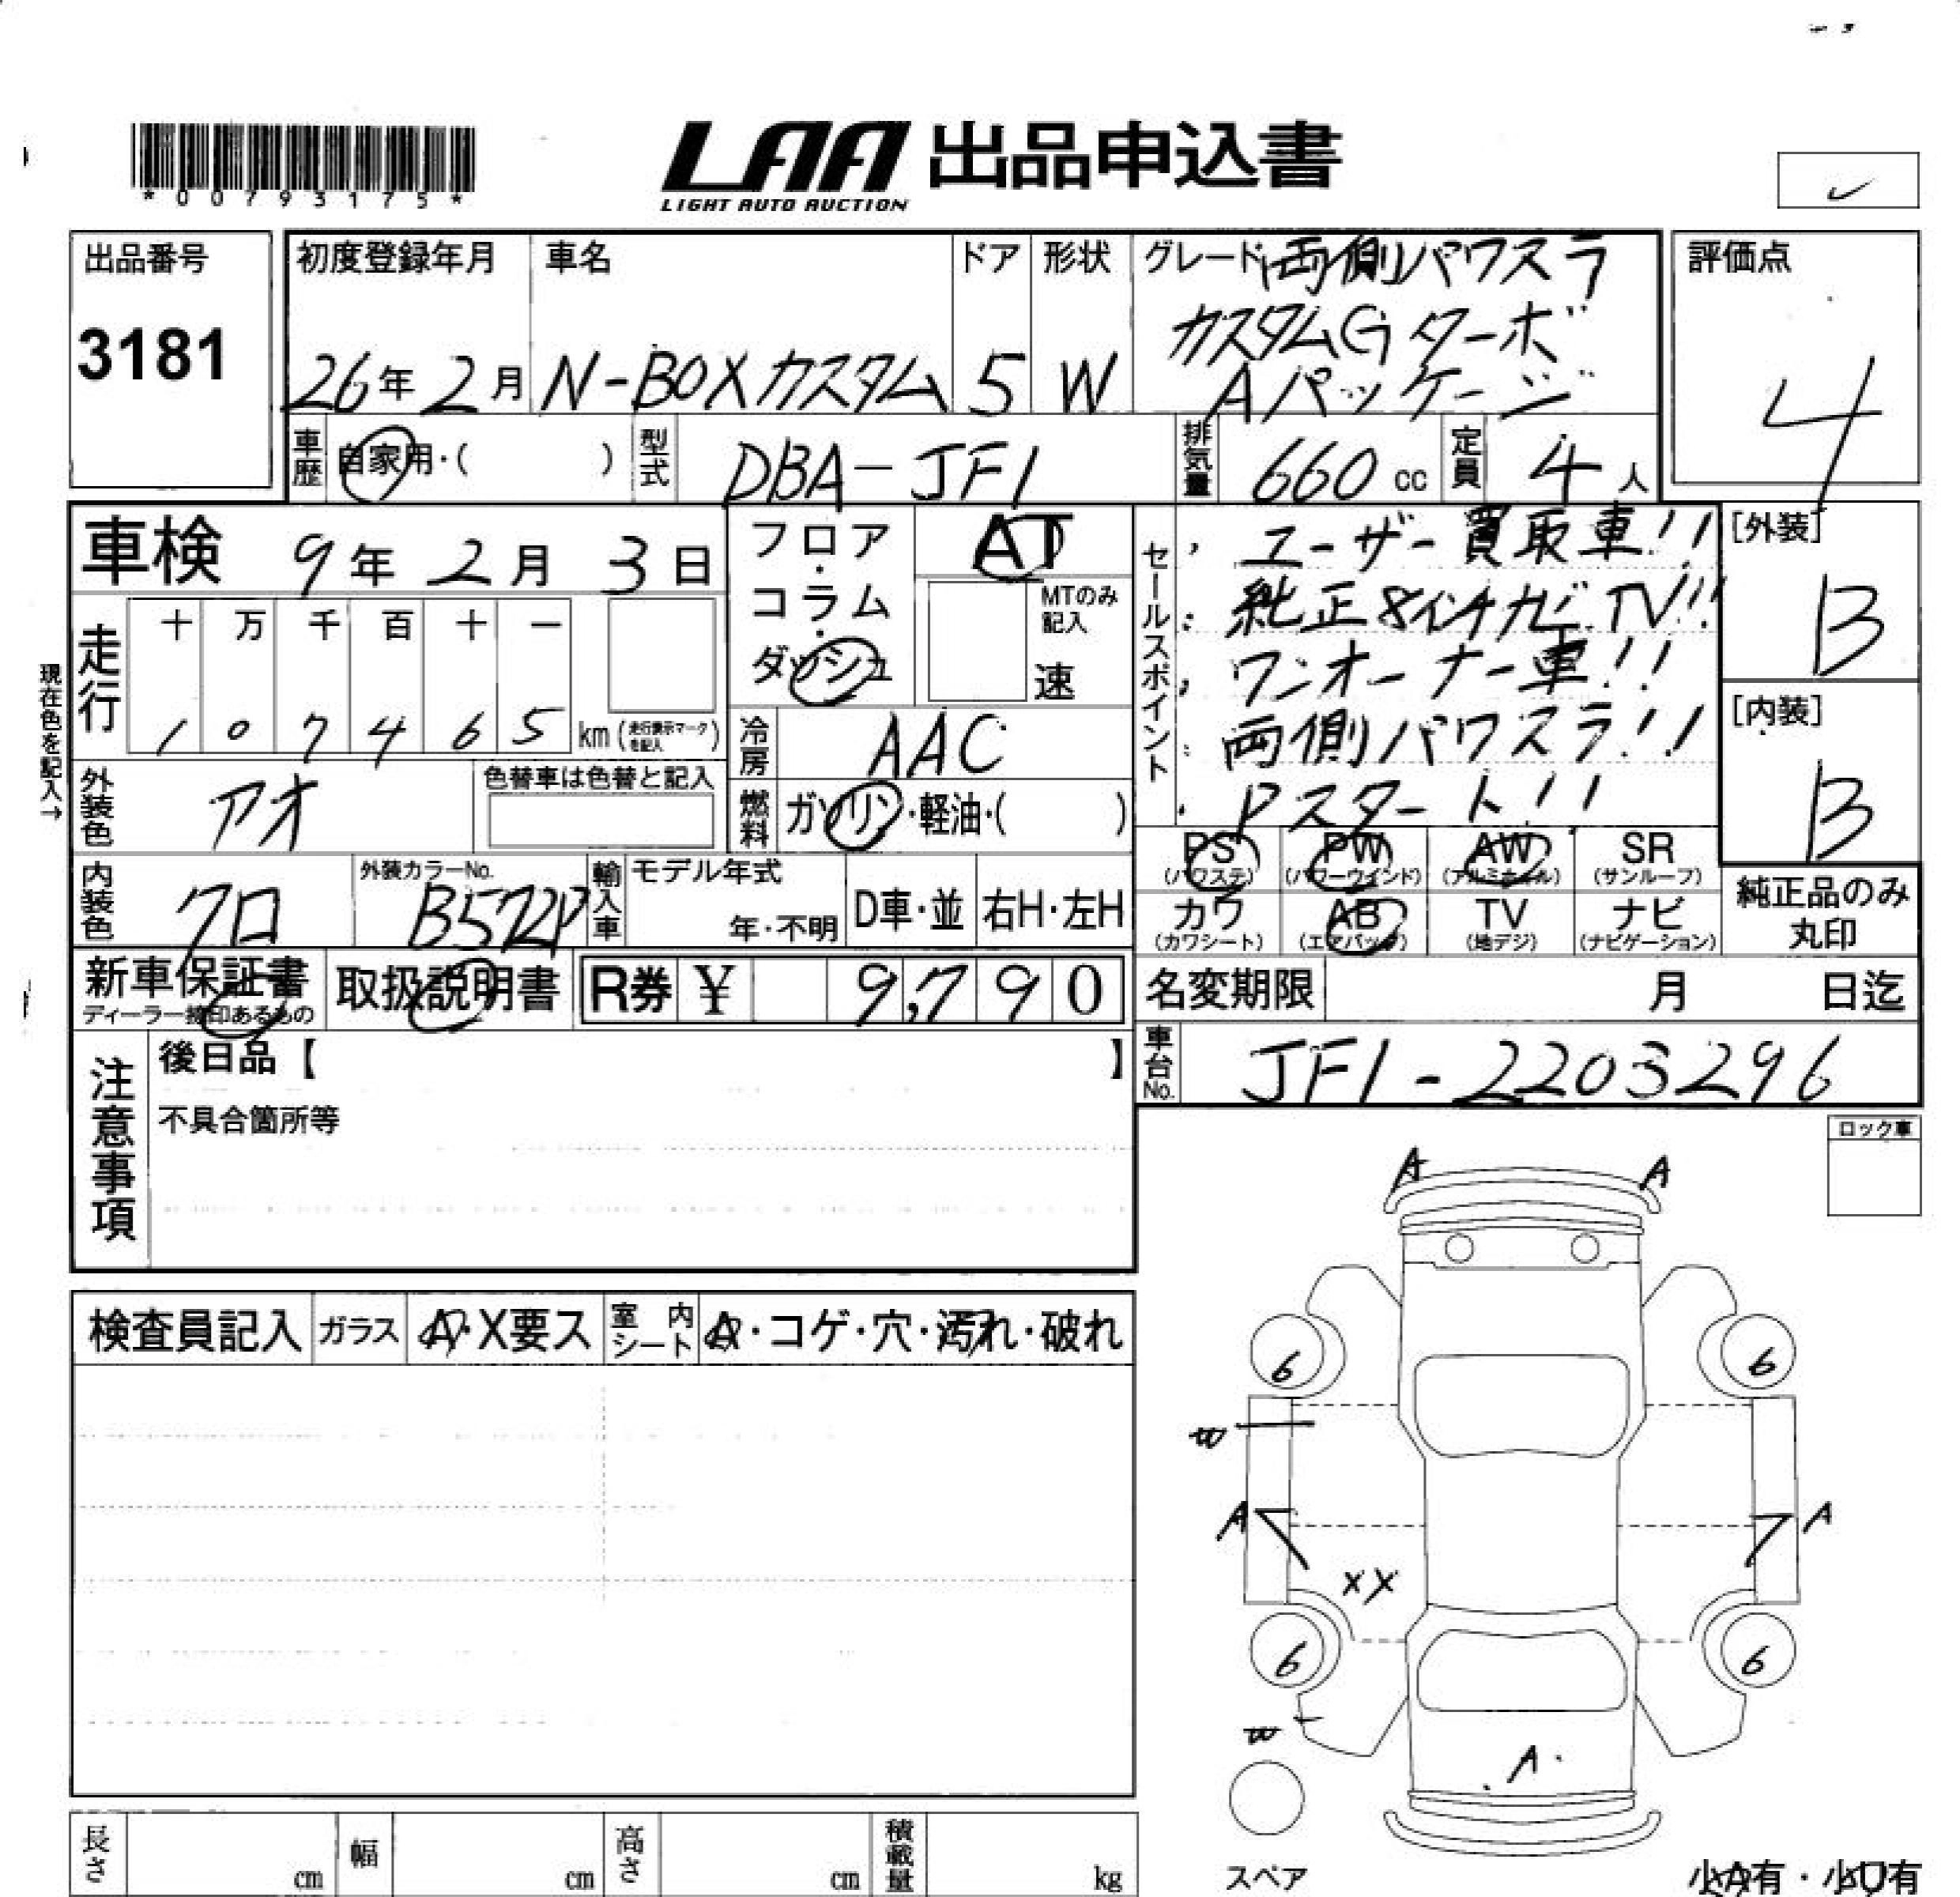 *00793175*
LAA 出品申込書
LIGHT AUTO AUCTION
出品番号
3181
初度登録年月
26年 2月
車名
N-BOXカスタム
ドア
5
形状
W
グレード 両側パワスラ
カスタムG ターボ
Aパッケージ
評価点
4
車歴 自家用・( )
型式 DBA-JF1
排気量 660 cc
定員 4人
車検 9年 2月 3日
フロア・コラム・ダッシュ
AT
MTのみ記入
速
セールスポイント
ユーザー買取車!!
純正8インチナビTV!!
ワンオーナー車!!
両側パワスラ!!
Pスタート!!
[外装]
B
[内装]
B
現在色を記入→
走行 十 万 千 百 十 一
1 0 7 4 6 5 km (走行表示マークを記入)
冷房 AAC
外装色 アオ
色替車は色替と記入
燃料 ガソリン・軽油・( )
PS (パワステ) PW (パワーウインド) AW (アルミホイル) SR (サンルーフ)
カワ (カワシート) AB (エアバック) TV (地デジ) ナビ (ナビゲーション)
純正品のみ
丸印
内装色 クロ
外装カラーNo. B572P
輸入車 モデル年式
年・不明
D車・並 右H・左H
新車保証書
ディーラー捺印あるもの
取扱説明書
R券 ¥ 9,790
名変期限 月 日迄
車台No. JF1-2203296
注意事項
後日品【 】
不具合箇所等
ロック車
A A
検査員記入 ガラス A・X要ス 室内シート A・コゲ・穴・汚れ・破れ
6 6
W
A A
XX
6 6
W
A
長さ cm 幅 cm 高さ cm 積載量 kg
スペア
小A有・小U有